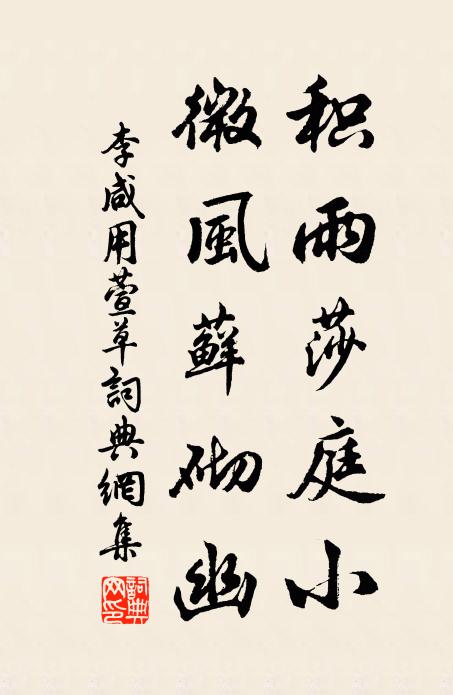 积雨莎庭小
微風蘚砌幽
李咸用萱草詞典網集
詞典网印